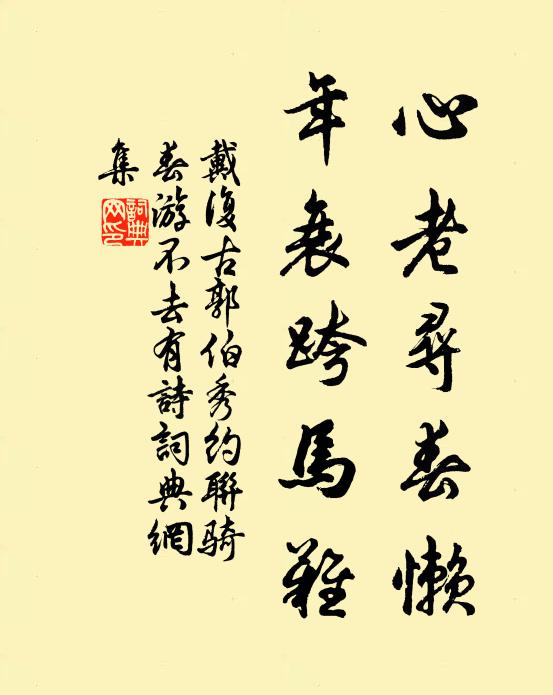 心老尋春懶
年衰跨馬難
戴復古郭伯秀約聯骑
春游不去有詩詞典網
集
詞典網印